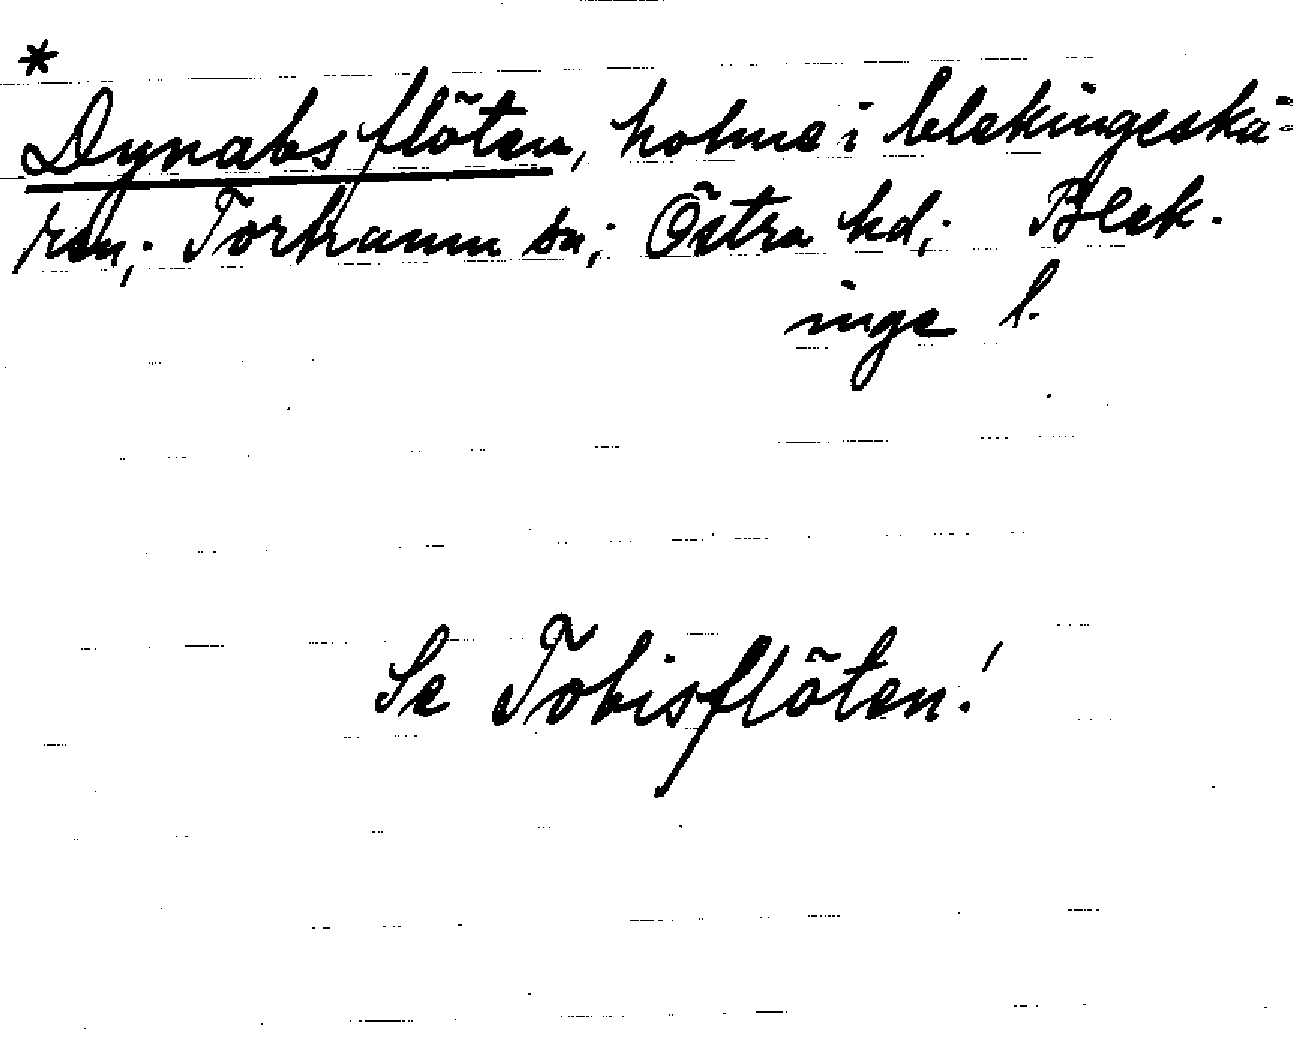 *
Dynabsflöten, holme i blekingeskä-
ren; Torhamn sn; Östra hd; Blek-
inge l.
Se Tobisflöten!